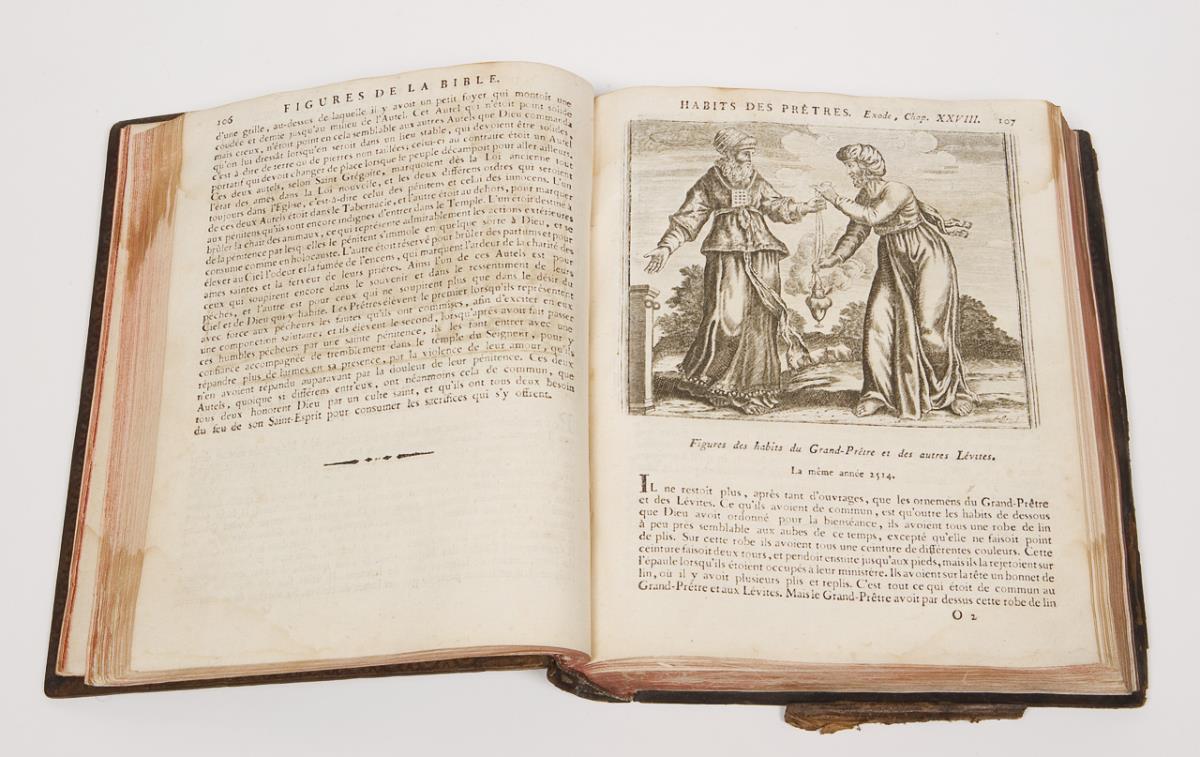 106
FIGURES DE LA BIBLE.
d'une grille, au-dessus de laquelle il y avoit un petit foyer qui montoit une
coudée et demie jusqu'au milieu de l'Autel. Cet Autel qui n'étoit point solide
mais creux, n'a point en cela semblable aux autres Autels que Dieu commanda
qu'on lui dressât lorsqu'on seroit dans un lieu stable, qui devoient être solides,
c'est à dire de terre ou de pierres non taillées; celui-ci au contraire étoit un Autel
portatif qui devoit changer de place lorsque le peuple décampoit pour aller ailleurs.
Ces deux autels, selon Saint Grégoire, marquoient dès la Loi ancienne tout
l'état des ames dans la Loi nouvelle, et les deux différens ordres qui seroient
toujours dans l'Eglise, c'est-à-dire celui des pénitens et celui des innocens. L'un
de ces deux Autels étoit dans le Tabernacle, et l'autre étoit au dehors, pour marquer
aux pénitens qu'ils sont encore indignes d'entrer dans le Temple. L'un étoit destiné à
brûler la chair des animaux, ce qui représente admirablement les actions extérieures
de la pénitence par lesquelles le pénitent s'immole en quelque sorte à Dieu, et se
consume comme en holocauste. L'autre étoit réservé pour brûler des parfums et pour
élever au Ciel l'odeur et la fumée de l'encens, qui marquent l'ardeur de la charité des
ames saintes et la ferveur de leurs prières. Ainsi l'un de ces Autels est pour
ceux qui soupirent encore dans le souvenir et dans le ressentiment de leurs
péchés, et l'autre est pour ceux qui ne soupirent plus que dans le désir du
Ciel et de Dieu qui y habite. Les Prêtres élèvent le premier lorsqu'ils représentent
avec force aux pécheurs les fautes qu'ils ont commises, afin d'exciter en eux
une componction salutaire, et ils élèvent le second, lorsqu'après avoir fait passer
ces humbles pécheurs par une sainte pénitence, ils les font entrer avec une
confiance accompagnée de tremblement dans le temple du Seigneur, pour y
répandre plus de larmes en sa présence, par la violence de leur amour, qu'ils
n'en avoient répandu auparavant par la douleur de leur pénitence. Ces deux
Autels, quoique si différens entr'eux, ont néanmoins cela de commun, que
tous deux honorent Dieu par un culte saint, et qu'ils ont tous deux besoin
du feu de son Saint-Esprit pour consumer les sacrifices qui s'y offrent.
HABITS DES PRÊTRES. Exode, Chap. XXVIII. 107
Figures des habits du Grand-Prêtre et des autres Lévites.
La même année 2514.
IL ne restoit plus, après tant d'ouvrages, que les ornemens du Grand-Prêtre
et des Lévites. Ce qu'ils avoient de commun, est qu'outre les habits de dessous
que Dieu avoit ordonné pour la bienséance, ils avoient tous une robe de lin
à peu près semblable aux aubes de ce temps, excepté qu'elle ne faisoit point
de plis. Sur cette robe ils avoient tous une ceinture de différentes couleurs. Cette
ceinture faisoit deux tours, et pendoit ensuite jusqu'aux pieds, mais ils la rejetoient sur
l'épaule lorsqu'ils étoient occupés à leur ministère. Ils avoient sur la tête un bonnet de
lin, où il y avoit plusieurs plis et replis. C'est tout ce qui étoit de commun au
Grand-Prêtre et aux Lévites. Mais le Grand-Prêtre avoit par dessus cette robe de lin
O 2